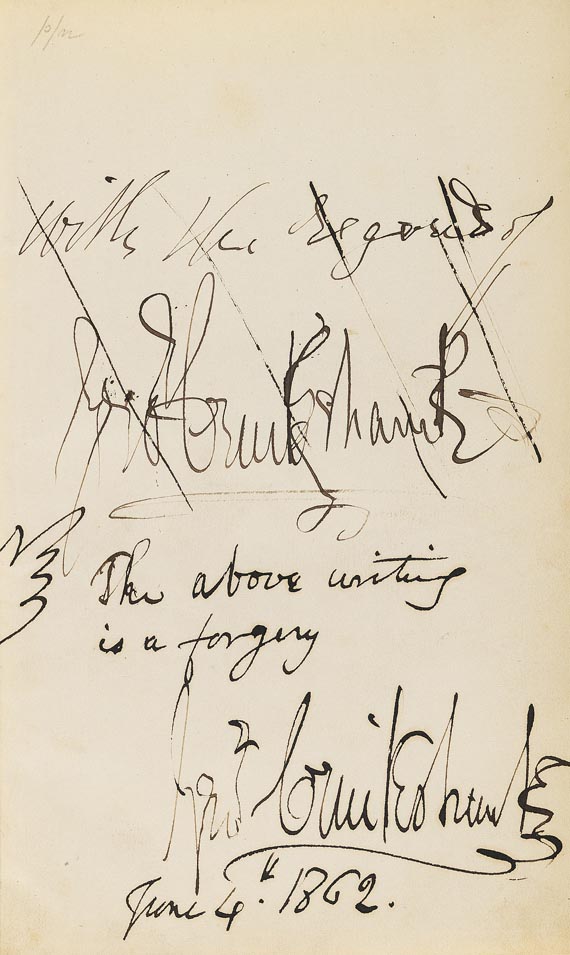 With the Regards of
Geo Cruikshank
The above writing
is a forgery
Geo Cruikshank
June 4th. 1862.